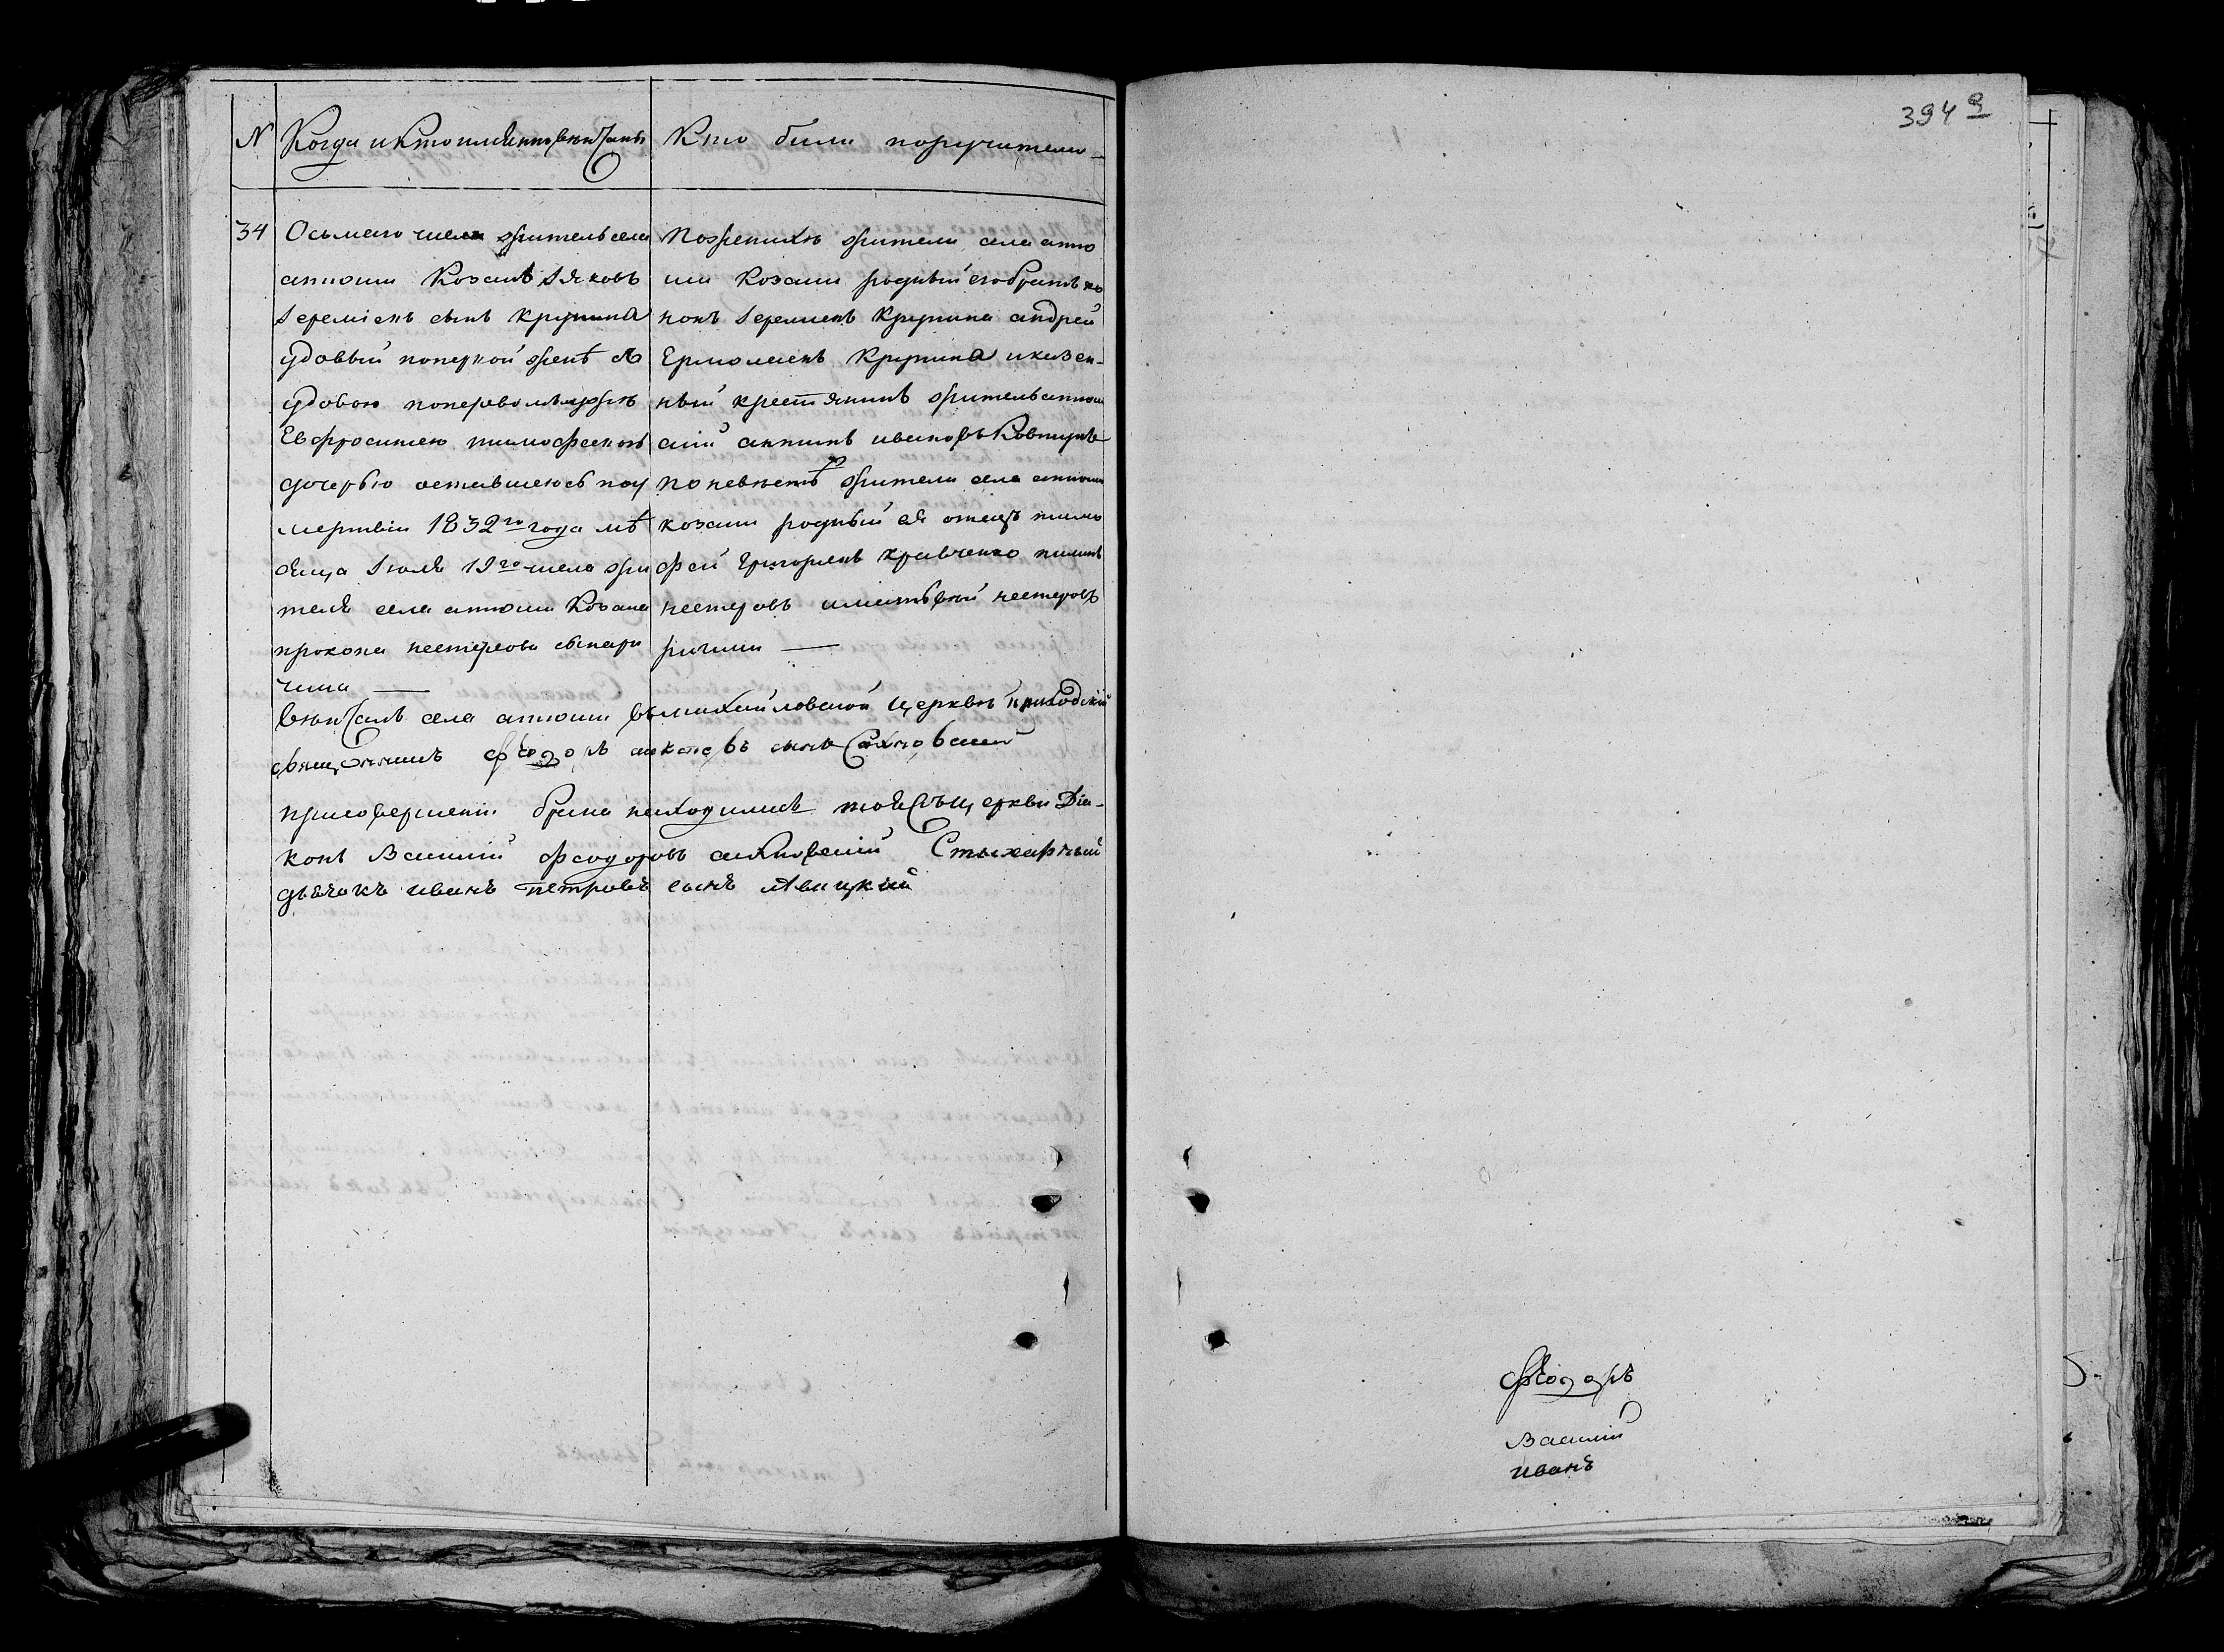 394 9
N Когда и кто имянно венчаны
Кто были поручители
34 Осьмаго числа житель села
аптоши Козакъ Іяковъ
Іереміевъ сынъ Крупина
удовый поперхой женѣ съ
удовою поперволѣ мужѣ
Евфросинею тимофеевою
дочерью оставшеюсь поу
мертвіи 1832го года мѣ
сяца Іюля 19го числа жи
теля села аптоши Козака
прокопа нестерова сына
Поженихѣ жители села апто
ши Козаки родный его братъ
Іереміевъ Крупина андрей
Ермолаевъ Крупина и казен-
ный крестянинъ житель аптош
антипъ ивановъ Ковтунъ
поневѣстѣ жители села аптоши
козаки родный ея отецъ тимо
фей Григорьевъ Кравченко
нестеровъ и матвей нестеровъ
Венчалъ села аптоши въ михайловской Церквѣ приходскій
священникъ Феодоръ сынъ
присовершеніи брака находились тояжъ церкви Dia-
конъ Василій феодоровъ Стыхарный
дьячокъ иванъ петровъ сынъ Явицкій
Феодоръ
Василій
иванъ